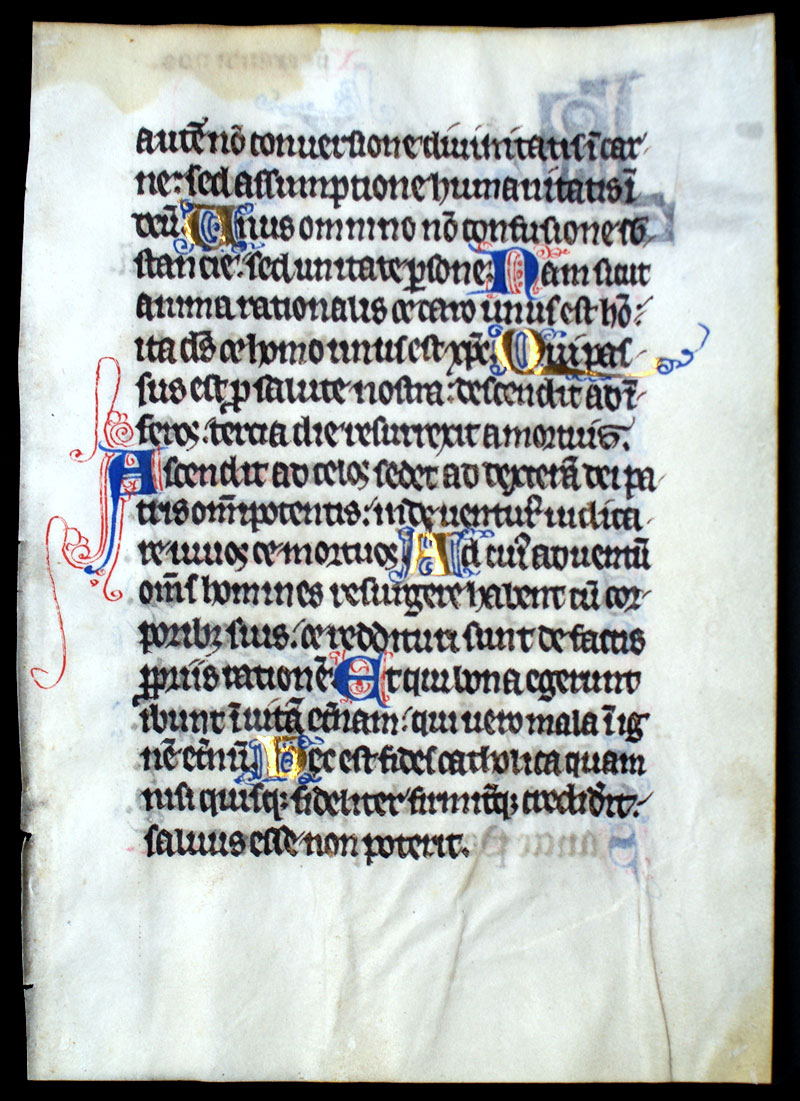 autē nō conuersione diuinitatis ī car-
ne: sed assumptione humanitatis ī
deū. Unus omnino nō confusione sb̄-
stancie: sed unitate ꝑsone. Nam sicut
anima rationalis & caro unus est hō:
ita ds̄ & homo unus est xp̄c. Qui pas-
sus est ꝓ salute nostra: descendit ad ī-
feros. tercia die resurrexit a mortuis.
Ascendit ad celos sedet ad dexterā dei pa-
tris omīpotentis: inde uenturꝰ iudica-
re uiuos & mortuos. Ad cuiꝰ aduentū
om̄s homines resurgere habent cū cor-
poribꝫ suis. & reddituri sunt de factis
ꝓpriis rationē. Et qui bona egerunt
ibunt ī uitā et̄nam: qui uero mala ī ig-
nē et̄nū. Hec est fides catholica quam
nisi quisqꝫ fideliter firmit̄qꝫ credid̄it.
saluus esse non poterit.